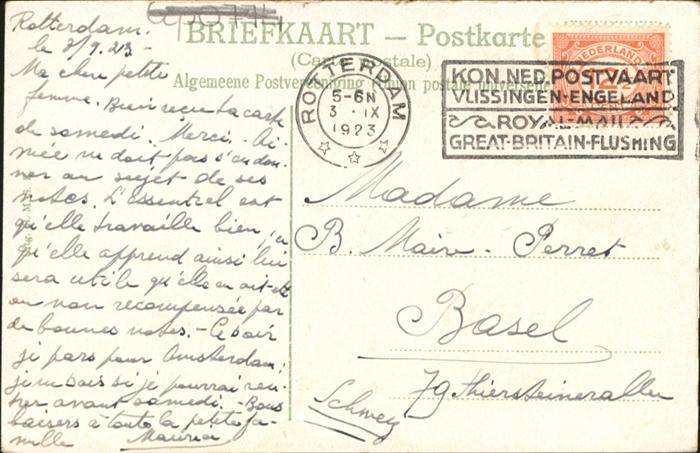 Rotterdam.
le 3/9.23-
BRIEFKAART — Postkarte
(Carte postale)
Algemeene Postvereeniging (Union postale universelle)
Ma chère petite
femme. Bien reçu ta carte
de samedi. Merci. Ai-
mée ne doit pas s'en don-
ner au sujet de ses
notes. L'essentiel est
qu'elle travaille bien, ce
qu'elle apprend ainsi lui
sera utile qu'elle en ait été
ou non recompensée par
de bonnes notes. - Ce soir
je pars pour Amsterdam;
je ne sais si je pourrai ren-
trer avant samedi. - Bons
baisers à toute la petite fa-
mille Maurice
ROTTERDAM
5-6N
3 IX
1923
NEDERLAND
KON. NED. POSTVAART
VLISSINGEN-ENGELAND
ROYAL-MAIL
GREAT-BRITAIN-FLUSHING
Madame
B. Maire-Perret
Basel
79 Thiersteinerallee
Schweiz